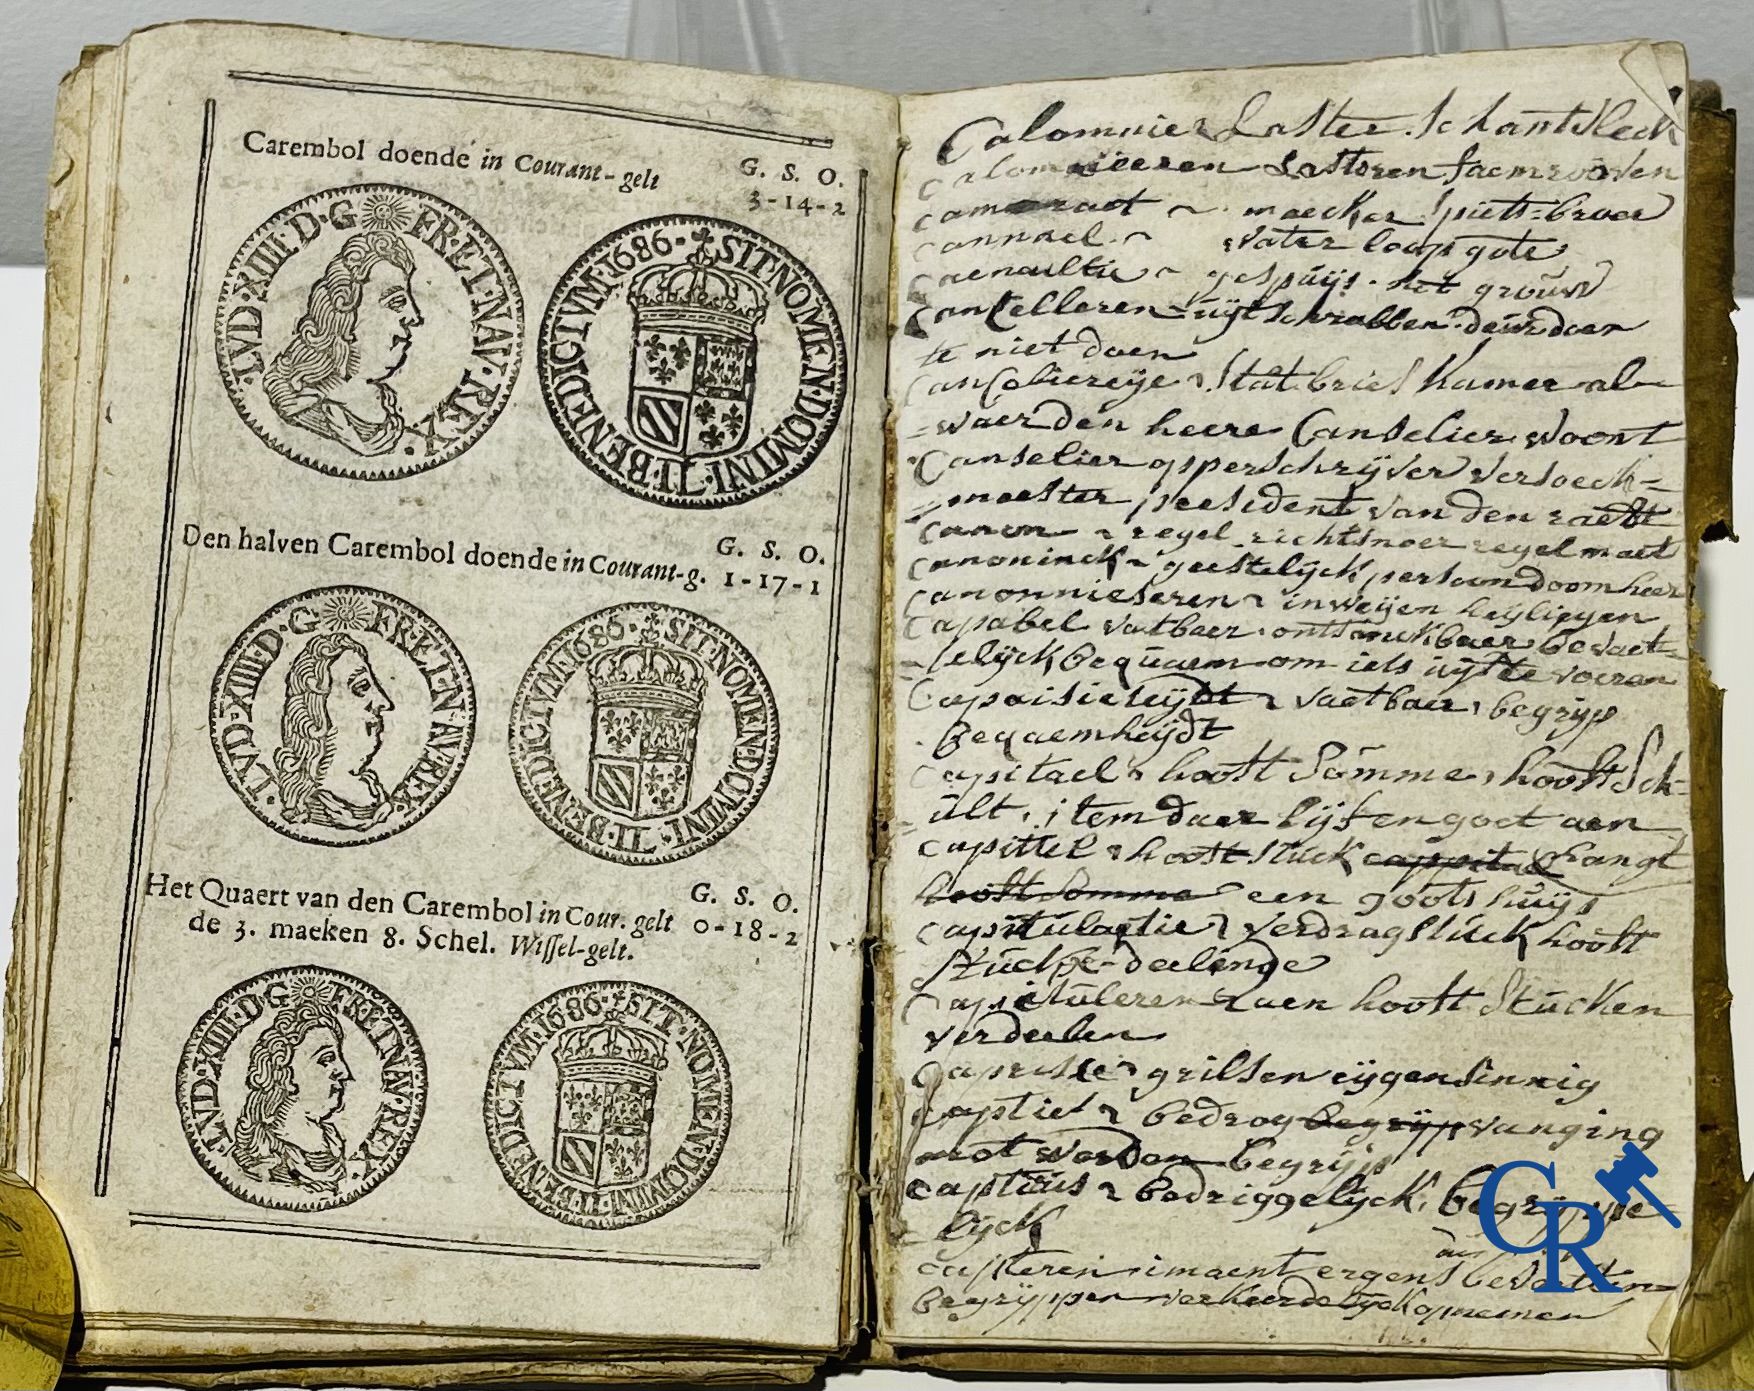 Carembol doende in Courant-gelt G. S. O.
3-14-2
LVD·XIIII·D·G FR·ET·NAV·REX·
1686· SIT·NOMEN·DOMINI·II·BENEDICTVM·
Den halven Carembol doende in Courant-g. G. S. O.
1-17-1
LVD·XIIII·D·G· FR·ET·NAV·REX·
1686· SIT·NOMEN·DOMINI·II·BENEDICTVM·
Het Quaert van den Carembol in Cour. gelt G. S. O.
0-18-2
de 3. maeken 8. Schel. Wissel-gelt.
LVD·XIIII·D·G FR·ET·NAV·REX·
1686· SIT·NOMEN·DOMINI·II·BENEDICTVM·
Calomnie Laster schantvleck
Calomnieeren Lasteren faemrooven
cameraet maecker spiets-broer
cannael water loop gote
caenailie gespuijs het grouw
Cancelleren uijtschrabben deurdoen
te niet doen
Canceliereije Stat brief kamer al-
-waer den heere Canselier woont
Canselier opperschrijver versoeck-
-meester president van den raedt
Canon regel richtsnoer regel maet
canoninck geestelijck persoon doomheer
canonniseren inweijen heijligen
Capabel vatbaer ontfanckbaer bevaet-
-lelijck bequaem om iets uijt te voeren
Capaisiteijdt vaetbaer begrijp
bequaemheijdt
capitael hooft somme hooft sch-
-ult item daer lijf en goet aen
capittel hooft stuck cappitael hangt
hooft somme een goots huijs
capitulaetie verdragstuck hooft
stucke-deelinge
Capituleren aen hooft stucken
verdeelen
Caprisse grillen eijgensinnig
captie bedrog begrijp vanging
begrijp
captieus bedriggelijck begrijpe
lijck
capteren imaent ergens
begrijpen verkeerdelijck opnemen
CR